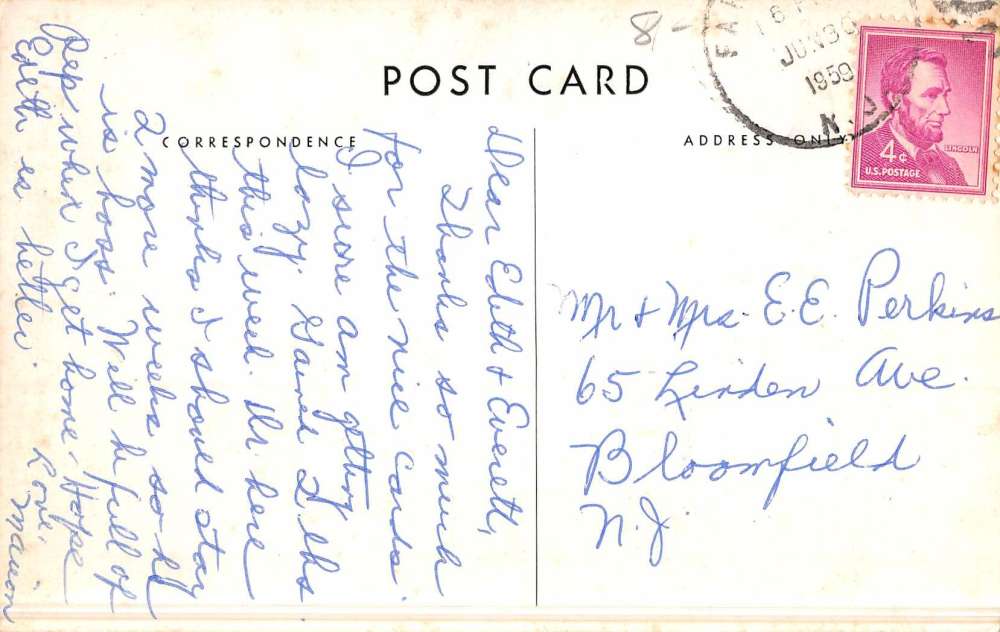 8
POST CARD
CORRESPONDENCE
ADDRESS ONLY
JUN 30
1959
N.J.
LINCOLN
4¢
U.S. POSTAGE
Dear Edith & Everett,
Thanks so much
for the nice cards.
I sure am getting
lazy. Gained 2 lbs
this week. Dr. here
thinks I should stay
2 more weeks so he
is boss. Will be full of
pep when I get home. Hope
Edith is better.
Love,
Marion
Mr & Mrs. E.E. Perkins
65 Linden Ave.
Bloomfield
N.J.